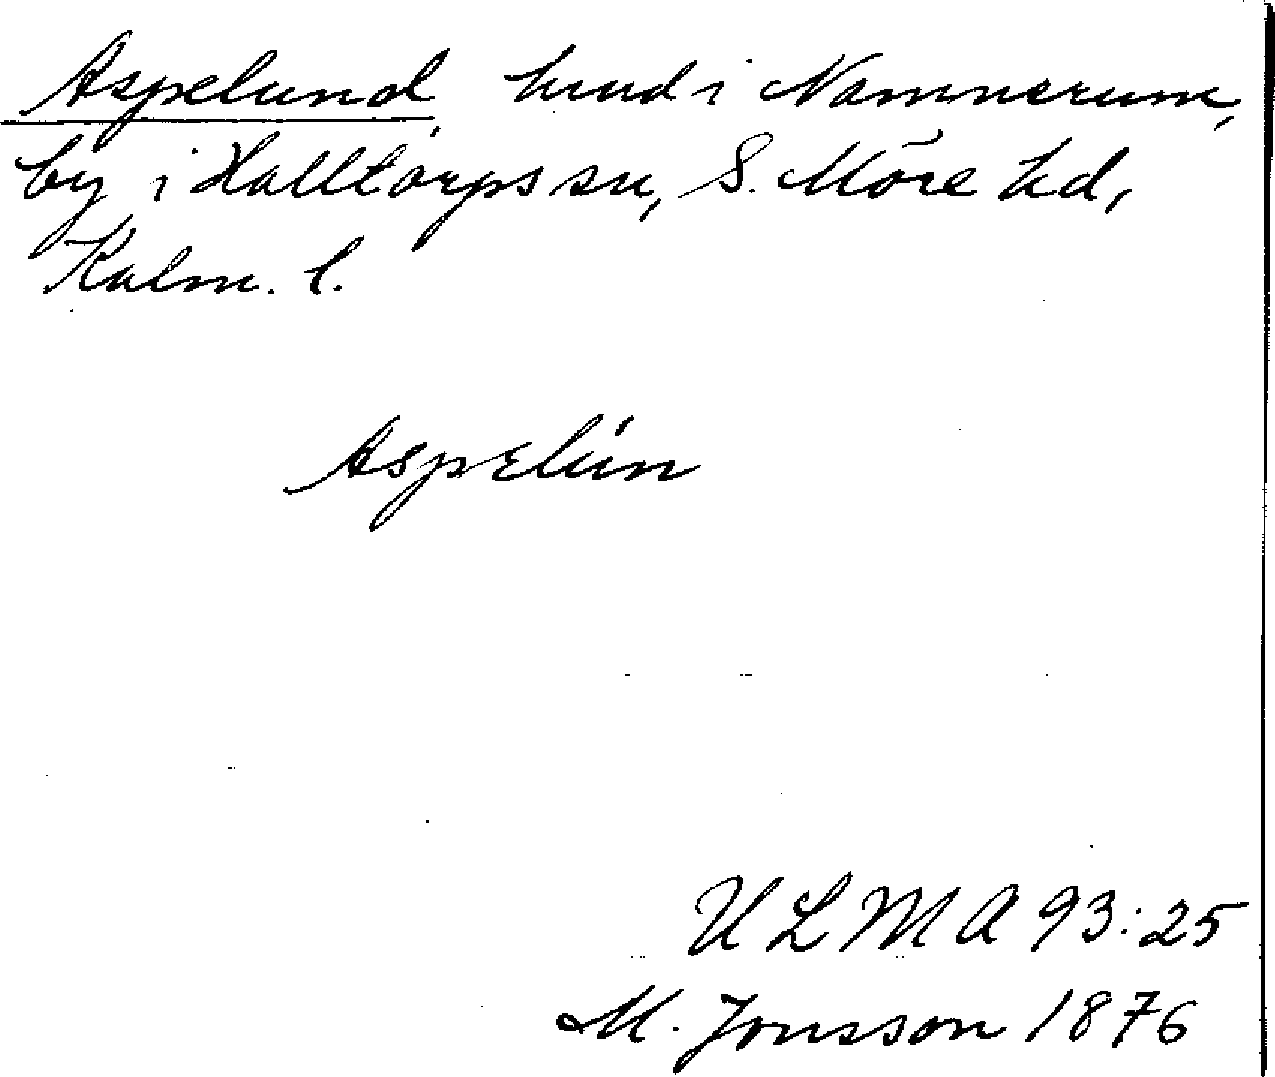 Aspelund, hmd i Namnerum,
by i Halltorps sn, S. Möre hd,
Kalm. l.
Aspelún
ULMA 93:25
M. Jonsson 1876